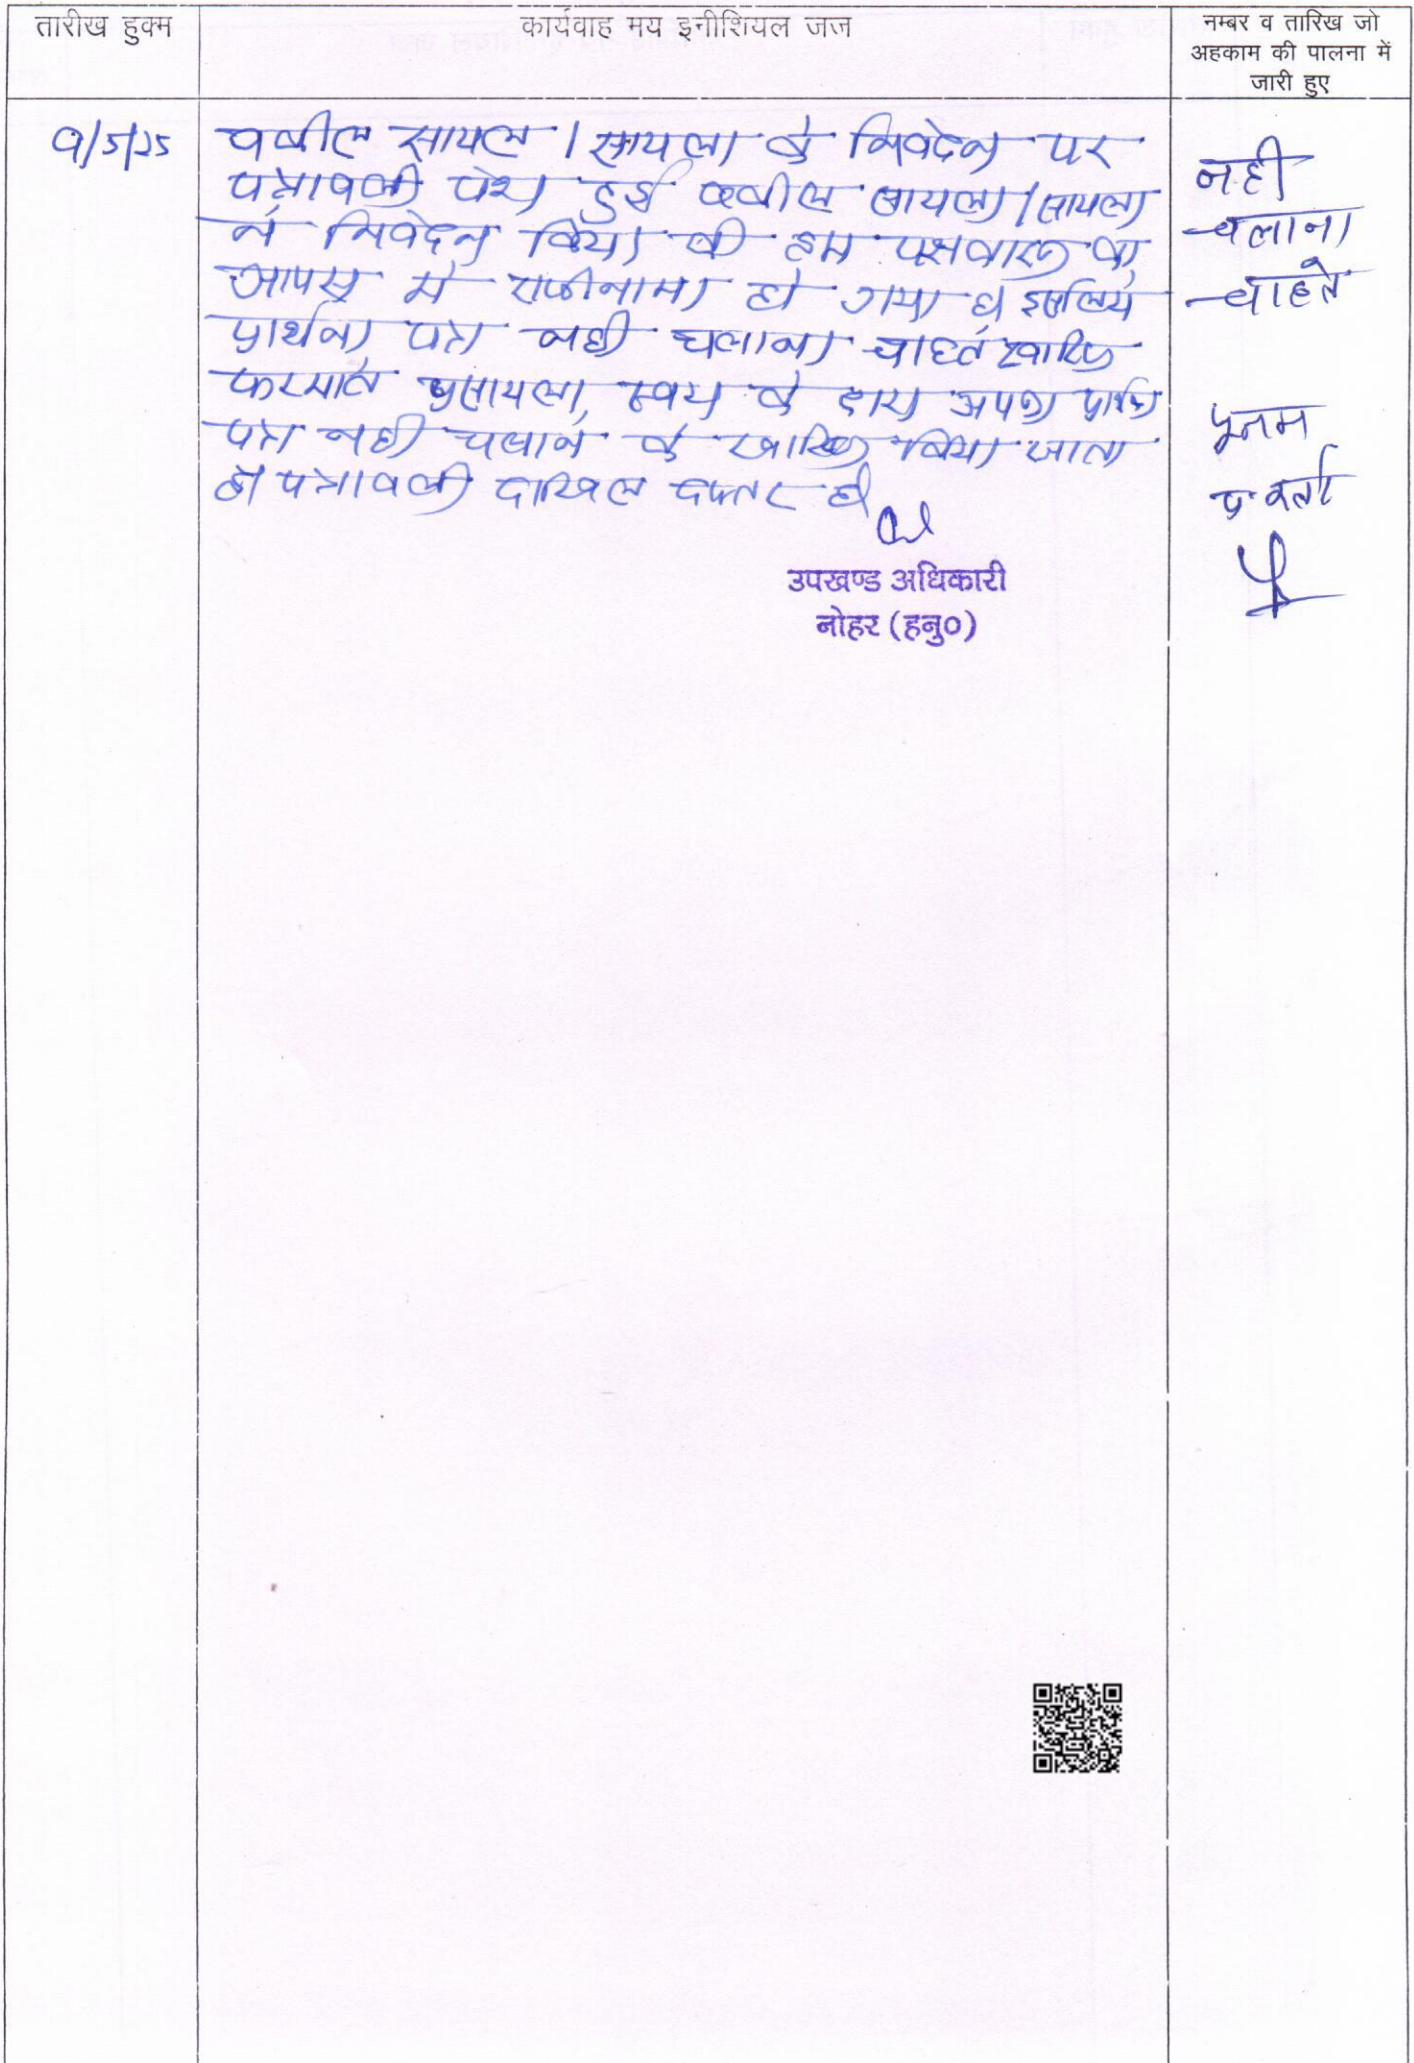 तारीख हुक्म
कार्यवाह मय इनीशियल जज
नम्बर व तारिख जो
अहकाम की पालना में
जारी हुए
9/5/25
वकील सायल / सायला के निवेदन पर
पत्रावली पेश हुई वकील सायला / सायला
ने निवेदन किया की हम पक्षकारान का
आपस में राजीनामा हो गया है इसलिये
प्रार्थना पत्र नही चलाना चाहते खारिज
फरमावे सायला स्वयं के द्वारा अपना प्रार्थना
पत्र नही चलाने के खारिज किया जाता
है पत्रावली दाखिल दफ्तर हो
उपखण्ड अधिकारी
नोहर (हनु०)
नही
चलाना
चाहते
पूनम